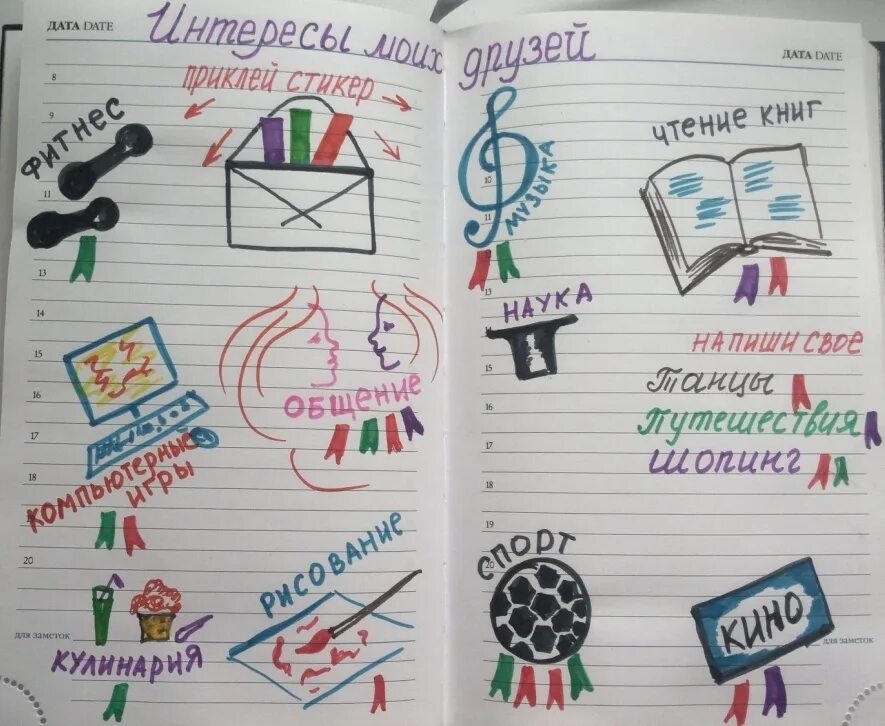 ДАТА DATE
Интересы моих друзей
ДАТА DATE
приклей стикер
8
9
фитнес
11
13
14
15
16
17
18
20
общение
компьютерные
игры
рисование
для заметок
кулинария
музыка
10
11
13
чтение книг
наука
напиши свое
Танцы
Путешествия
шопинг
15
16
17
18
19
20
спорт
кино
для заметок